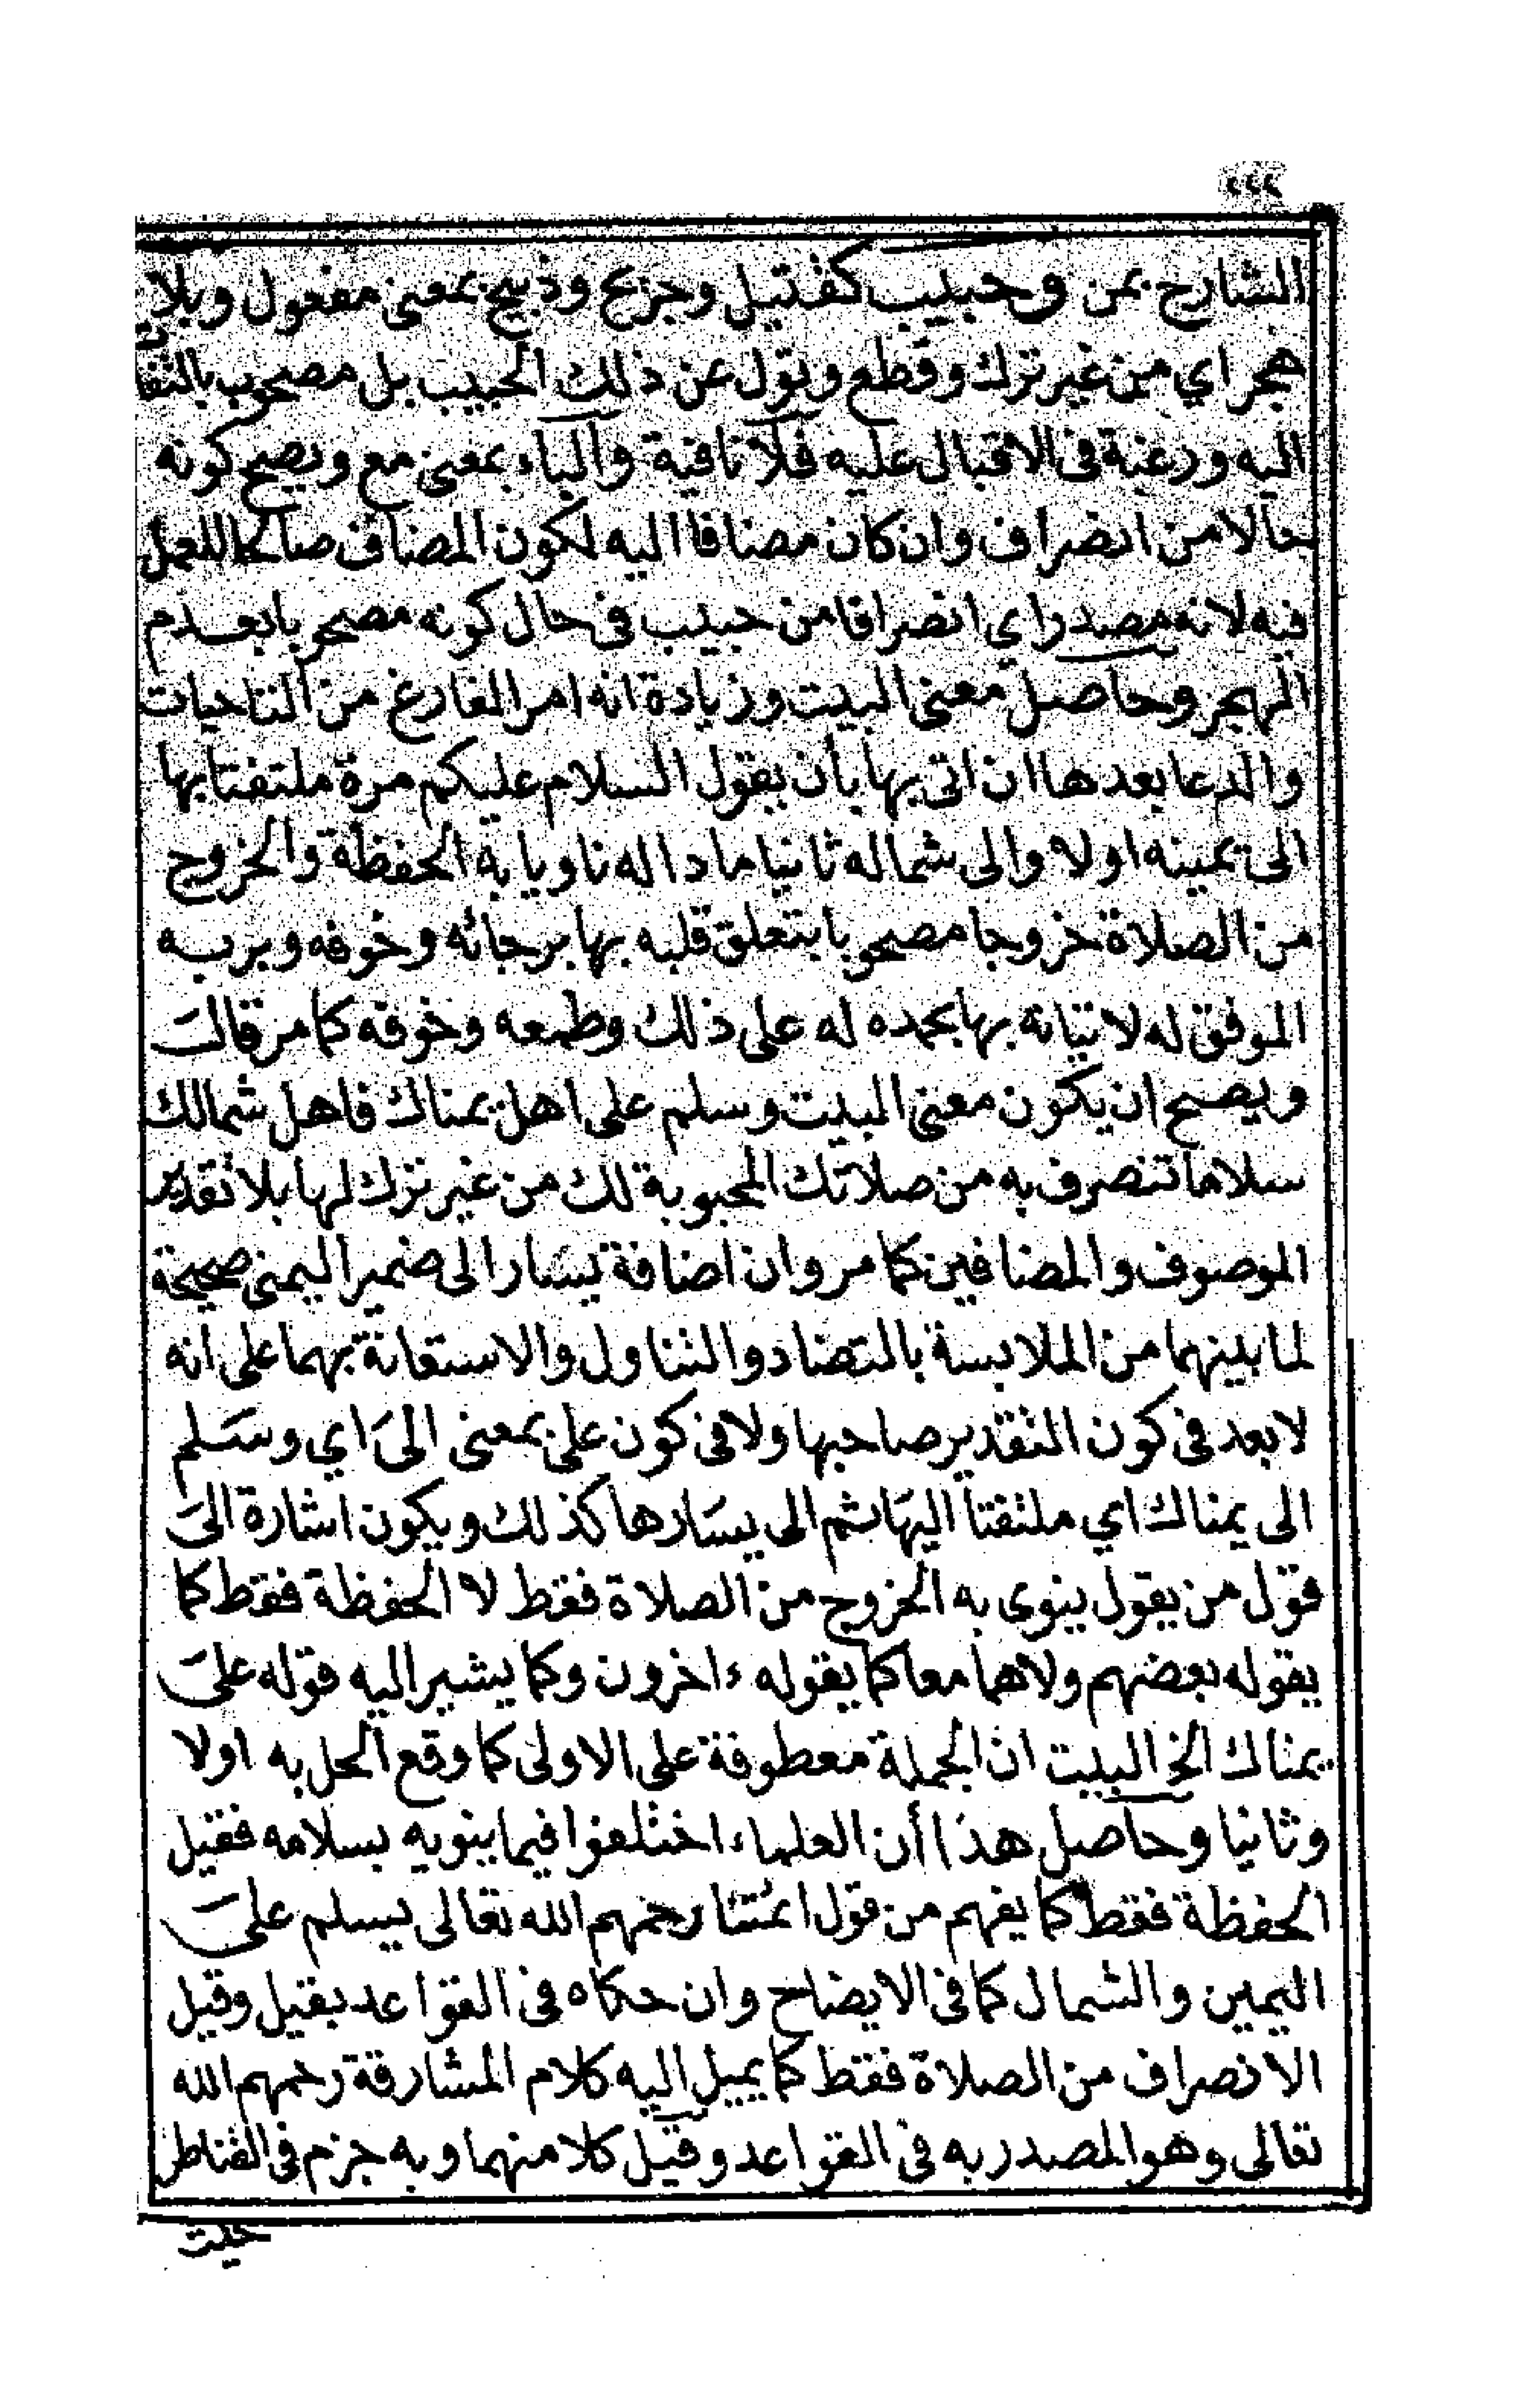 ٢٢٢
الشارح بمن وحبيب كفتيل وجريح وذبيح بمعنى مفعول وبلا
هجر اي من غير ترك وقطع وتول عن ذلك الحبيب بل مصحوب بالتفات
اليه ورغبة في الاقبال عليه فلا نافية والباء بمعنى مع ويصح كونه
حالا من انصراف وان كان مضافا اليه لكون المضاف صالحا للعمل
فيه لانه مصدر اي انصرافا من حبيب في حال كونه مصحوبا بعدم
الهجر وحاصل معنى البيت وزيادة انه امر الفارغ من التاحيات
والدعا بعدها ان اتى بها بأن يقول السلام عليكم مرة ملتفتا بها
الى يمينه اولا والى شماله ثانيا مادا له ناويا به الحفظة والخروج
من الصلاة خروجا مصحوبا بتعلق قلبه بها برجائه وخوفه وبربه
الموفق له لاتيانه بها بحمده له على ذلك وطمعه وخوفه كما مر قال
ويصح ان يكون معنى البيت وسلم على اهل يمناك فاهل شمالك
سلاما تنصرف به من صلاتك المحبوبة لك من غير ترك لها بلا تقدير
الموصوف والمضافين كما مر وان اضافة يسار الى ضمير اليمنى صحيحة
لما بينهما من الملابسة بالتضاد والتناول والاستعانة بهما على انه
لا بعد في كون التقدير صاحبها ولا في كون على بمعنى الى اي وسلم
الى يمناك اي ملتفتا اليها ثم الى يسارها كذلك ويكون اشارة الى
قول من يقول ينوى به الخروج من الصلاة فقط لا الحفظة فقط كما
يقوله بعضهم ولا هما معا كما يقوله ءاخرون وكما يشير اليه قوله على
يمناك الخ البيت ان الجملة معطوفة على الاولى كما وقع الحل به اولا
وثانيا وحاصل هذا أن العلماء اختلفوا فيما ينويه بسلامه فقيل
الحفظة فقط كما يفهم من قول ائمتنا رحمهم الله تعالى يسلم على
اليمين والشمال كما في الايضاح وان حكاه في القواعد بقيل وقيل
الانصراف من الصلاة فقط كما يميل اليه كلام المشارقة رحمهم الله
تعالى وهو المصدر به في القواعد وقيل كلا منهما وبه جزم في القناطر
حيث